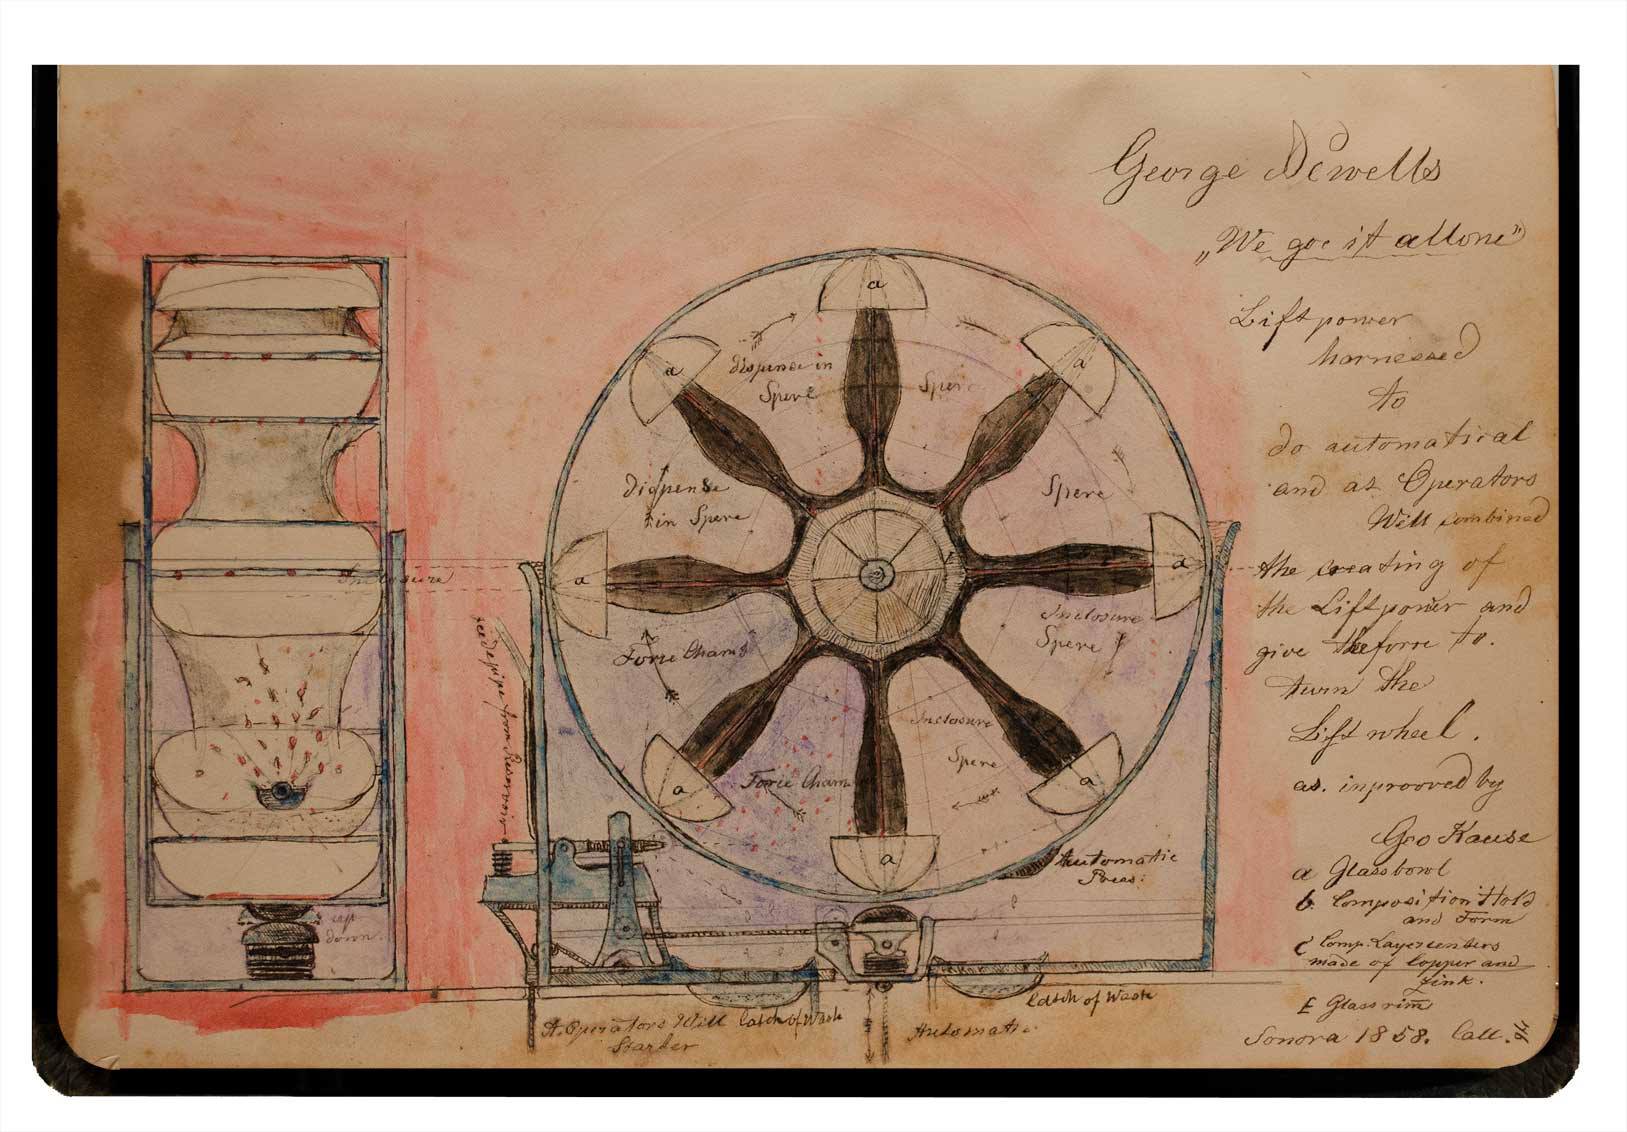 George Dewells
„We goe it allone”
Liftpower
harnessed
to
do automatical
and at Operators
Will combined
the creating of
the Liftpower and
give the forre to.
turn the
Liftwheel.
as. inprooved by
Geo Kause
a Glassbowl
b. Composition Hold
and Form
c Comp. Layersenters
made of Copper and
Zink.
E Glass rim
Sonora 1858. Call.
a
a
a
a
a
a
a
a
dispense in
Spere
Spere
dispense
in Spere
Spere
Inclosure
Inclosure
Spere
Force Cham
Force Cham
Inclosure
Spere
Feed pipe from Reservoir
Automatic
Press:
cap
down.
Catch of Waste
A. Operators Will
Starter
Catch of Waste
Automatic